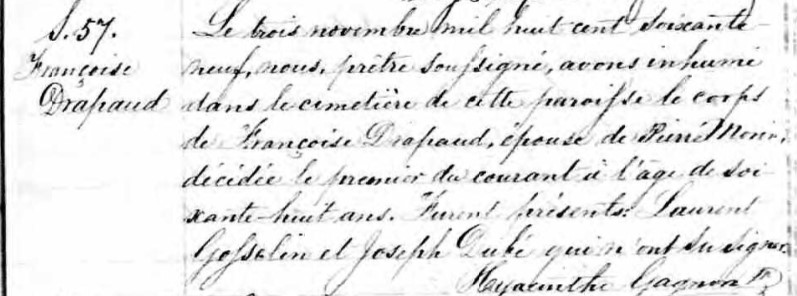 S. 57.
Françoise
Drapaud
Le trois novembre mil huit cent soixante-
neuf, nous, prêtre soussigné, avons inhumé
dans le cimetière de cette paroisse le corps
de Françoise Drapaud, épouse de Pierre Morin,
décédée le premier du courant à l'âge de soi-
xante-huit ans. Furent présents: Laurent
Gosselin et Joseph Dubé qui n'ont su signer.
Hyacinthe Gagnon Ptre